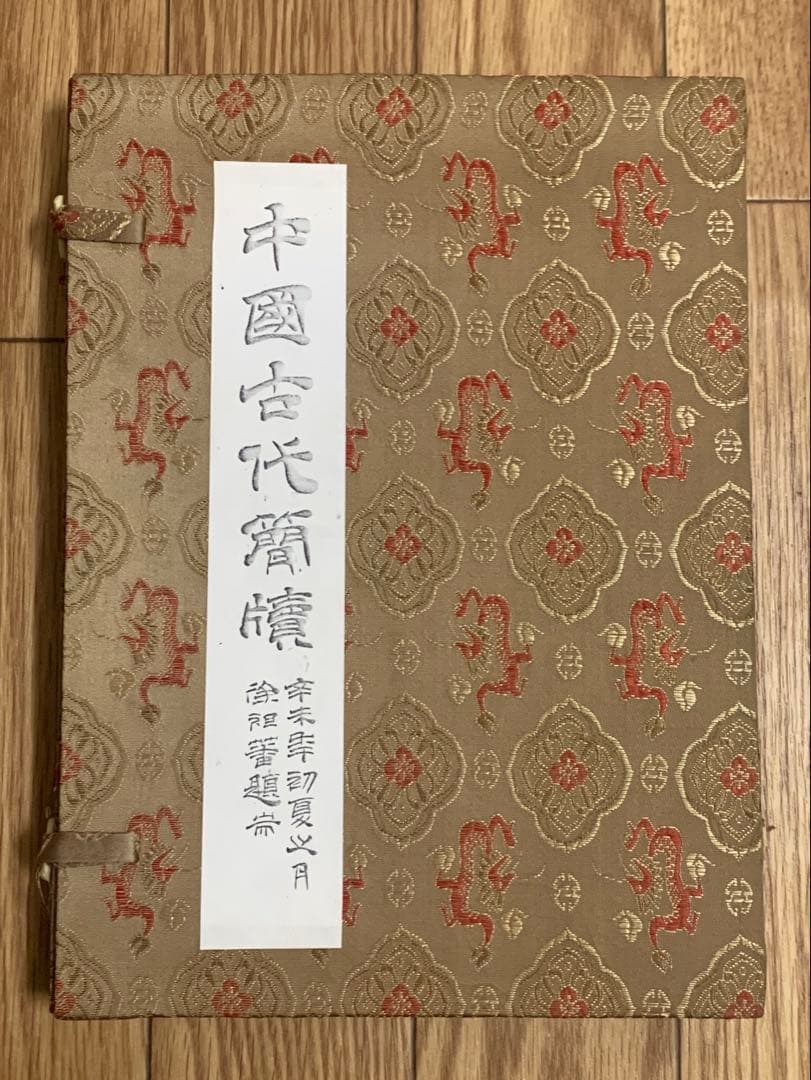 中國古代簡牘
辛未年初夏之月
徐祖蕃題耑